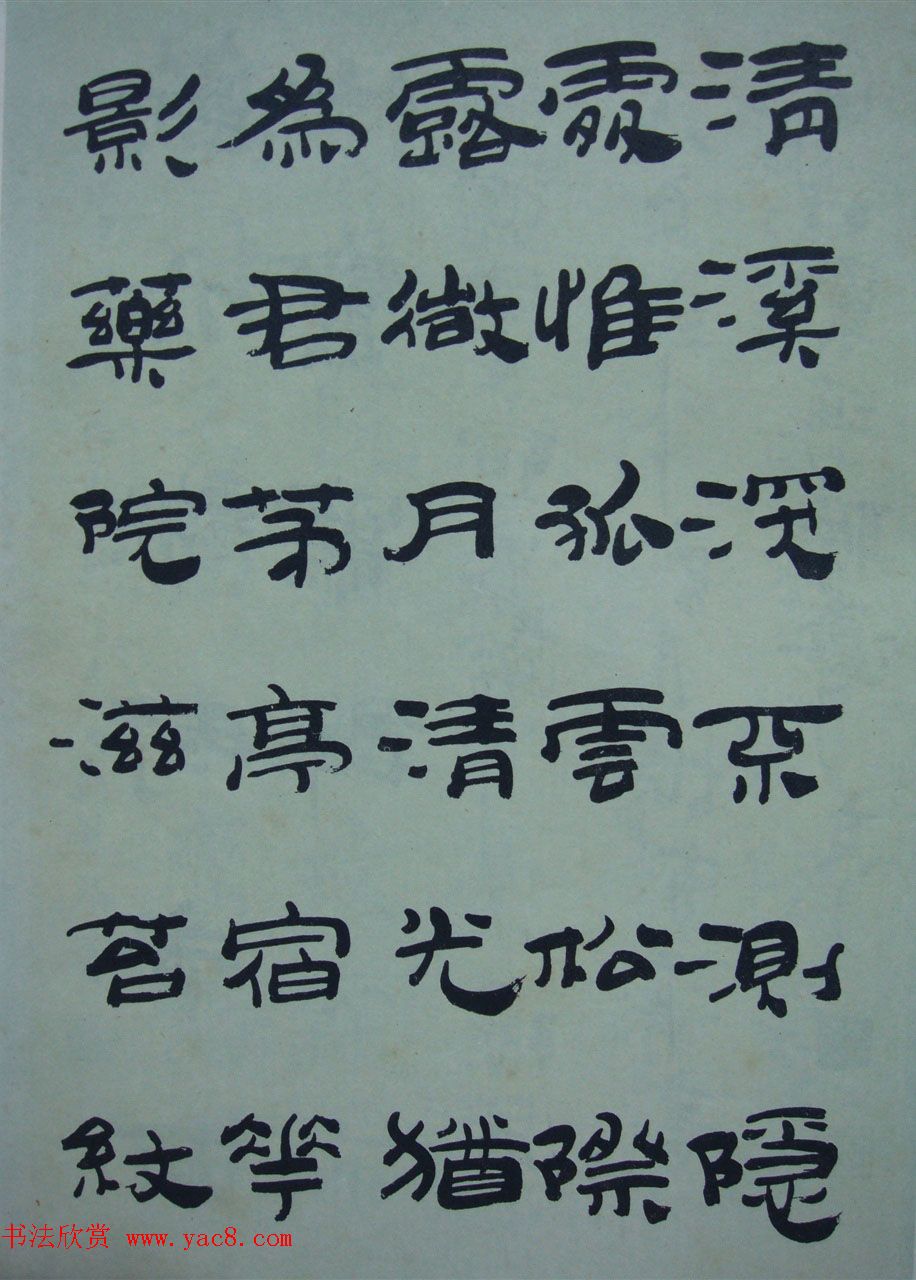 清溪深不測隱
處惟孤雲松際
露微月清光猶
為君茅亭宿華
影藥院滋苔紋
书法欣赏 www.yac8.com